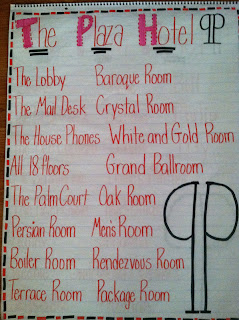 The Plaza Hotel
The Lobby Baroque Room
The Mail Desk Crystal Room
The House Phones White and Gold Room
All 18 floors Grand Ballroom
The Palm Court Oak Room
Persian Room Men's Room
Boiler Room Rendezvous Room
Terrace Room Package Room